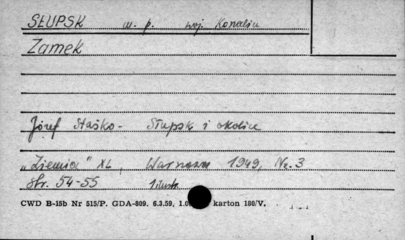 SŁUPSK m. p. woj. Konalin
Zamek
Józef Staśko - Słupsk i okolice
„Ziemia" XL, Warszawa 1949, Nr. 3
str. 54-55 ilustr.
CWD B-15b Nr 515/P. GDA-809. 6.3.59, 1.0 karton 180/V.